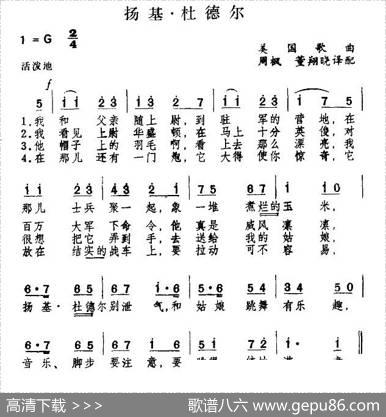 扬基·杜德尔
1=G 2/4
美国歌曲
活泼地
周枫 董翔晓译配
f
5 | i i 2 3 | i 3 2 | i i 2 3 | i 7 5 |
1.我和父亲随上尉,到驻军的营地,在
2.我看见上尉华盛顿,在马上十分英俊,对
3.他帽子上的羽毛啊,看上去那么漂亮,我
4.在那儿还有一门炮,它大得使你惊奇,它
i i 2 3 | 4 3 2 i | 7 5 6 7 | i i 0 |
那儿士兵聚一起,象一堆煮烂的玉米,
百万大军下命令,他真是威风凛凛,
很想把它弄到手,去送给我的姑娘,
放在结实的战车上,要拉动可不容易,
6·7 6 5 | 6 7 i | 5·6 5 4 | 3 5 |
扬基·杜德尔别泄气,和姑娘跳舞有乐趣,
音乐、脚步要注意,要
高清下载 >>>
歌谱八六 www.gepu86.com